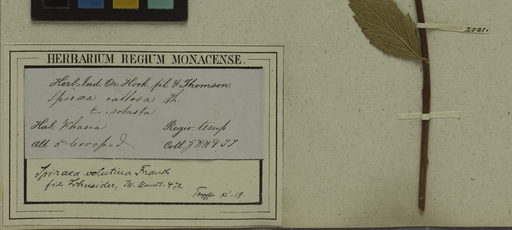 HERBARIUM REGIUM MONACENSE.
Herb. Ind. Or. Hook. fil. & Thomson.
Spiraea callosa Th.
robusta
Hab. Khasia Regio temp
Alt. 5-6000 ped Coll. J D H & T T
Spiraea velutina Franch
fide Schneider, 472